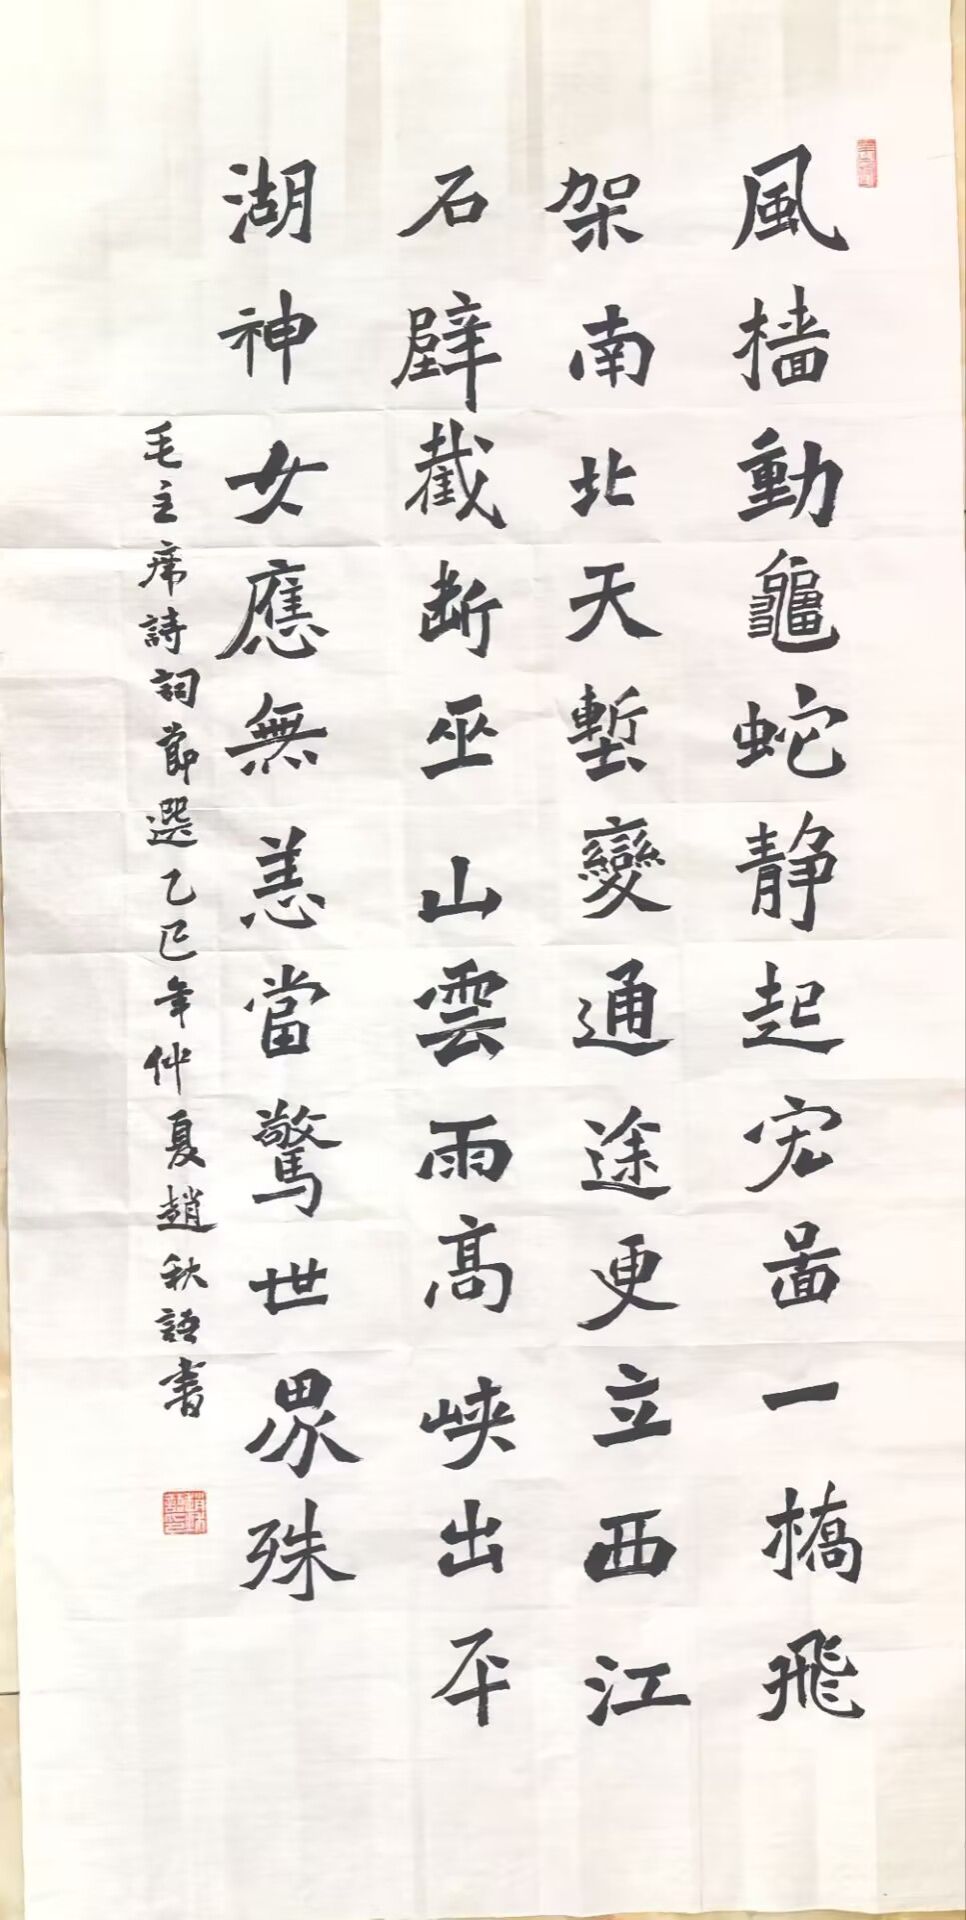 風檣動龜蛇静起宏啚一橋飛
架南北天塹變通途更立西江
石壁截斷巫山雲雨高峽出平
湖神女應無恙當驚世界殊
毛主席詩詞節選乙巳年仲夏趙秋語書